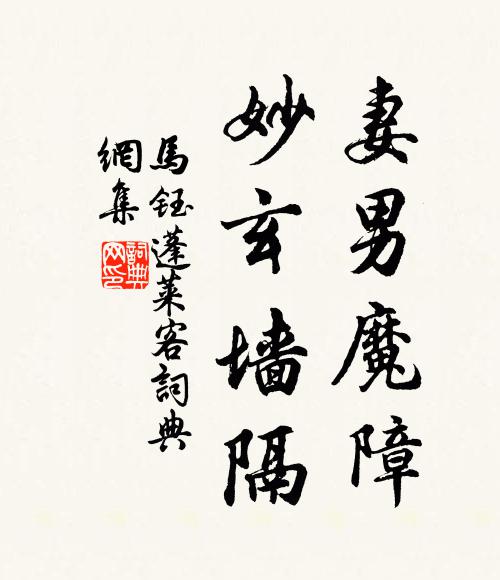 妻男魔障
妙玄墙隔
馬鈺蓬萊客詞典
網集
詞典
网印